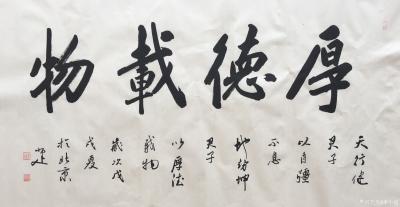 厚德載物
天行健
君子
以自彊
不息
地势坤
君子
以厚德
載物
歲次戊
戌夏
於北京